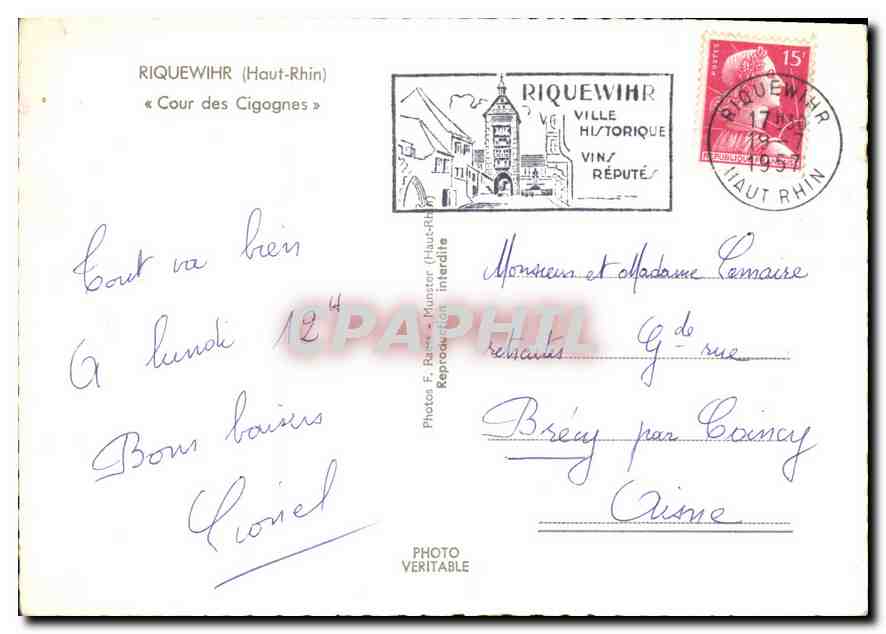 RIQUEWIHR (Haut-Rhin)
« Cour des Cigognes »
RIQUEWIHR
VILLE
HISTORIQUE
VINS
RÉPUTÉS
POSTES
15F
RIQUEWIHR
17H
19-7
1957
HAUT RHIN
Tout va bien
A lundi 12H
Bons baisers
Lionel
Photos F. - Munster (Haut-Rhin)
Reproduction interdite
CPAPHIL
Monsieur et Madame Lemaire
retraités Gde rue
Brécy par Coincy
Aisne
PHOTO
VERITABLE